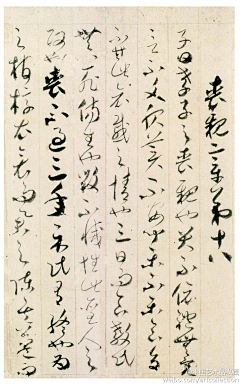 喪親章第十八
子曰孝子之喪親也哭不偯禮無容
言不文服美不安聞樂不樂食旨
不甘此哀慼之情也三日而食教民
無以死傷生毀不滅性此聖人之
政也喪不過三年示民有終也為
之棺椁衣衾而舉之陳其簠簋而
weibo.com/artcollection